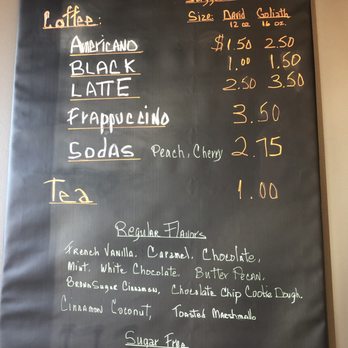 Coffee:
Size: David Goliath
12 oz. 16 oz.
Americano $1.50 2.50
BLACK 1.00 1.50
LATTE 2.50 3.50
Frappuccino 3.50
Sodas Peach, Cherry 2.75
Tea 1.00
Regular Flavors
French Vanilla, Caramel, Chocolate,
Mint, White Chocolate, Butter Pecan,
Brown Sugar Cinnamon, Chocolate Chip Cookie Dough,
Cinnamon Coconut, Toasted Marshmallo
Sugar Free